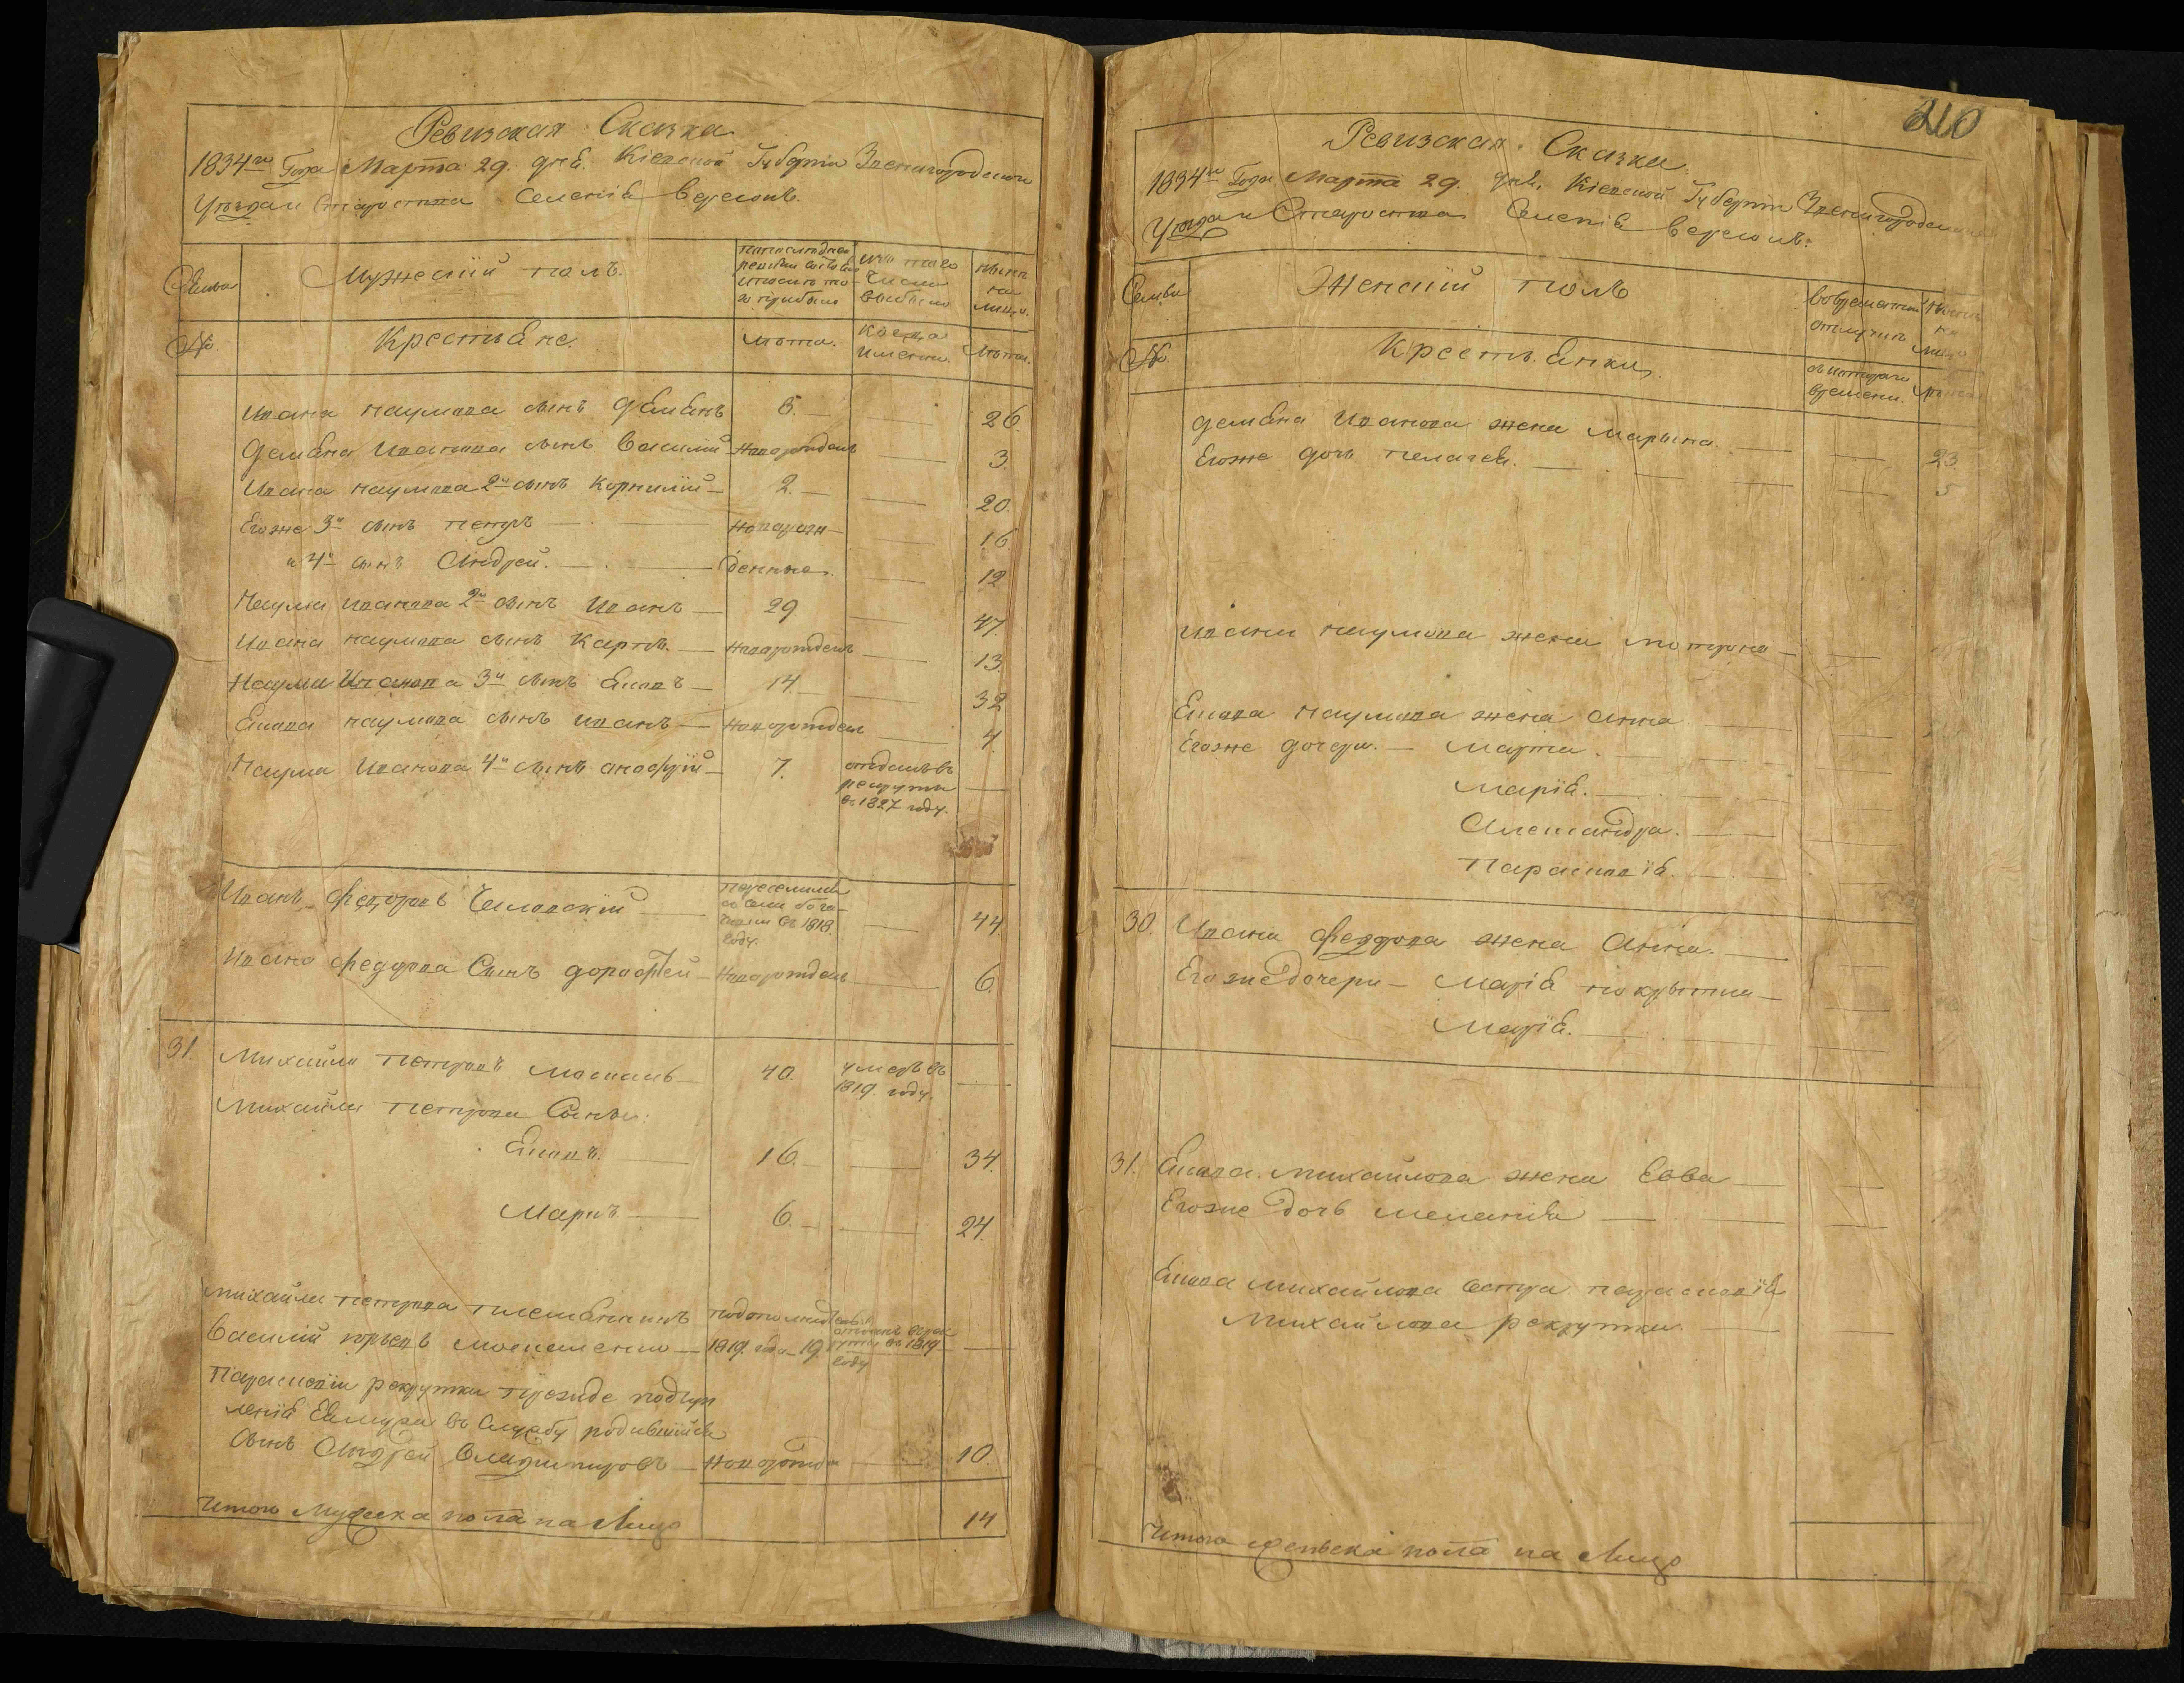 Ревизская Сказка
1834го Года Марта 29. дня. Кіевской Губерніи Звенигородского
Уезда Староства Селенія
Семьи
Мужескій полъ.
по последней
ревизіи состояло
и после то-
го прибыло
изъ того
числа
выбыло
ныне
на
лицо.
№.
Крестьяне.
Лета.
Когда
именно.
Лета.
Ивана Наумова сынъ Демянъ 8. 26.
Демяна Иванова сынъ Василій Новорожденъ 3.
Ивана Наумова 2й сынъ Корнилій 2. 20.
Егоже 3й сынъ Петръ Новорож- 16
и 4й сынъ Андрей. денные. 12
Наума Иванова 2й сынъ Иванъ 29 47.
Ивана Наумова сынъ Карпъ. Новорожденъ 13.
Наума Иванова 3й сынъ Есипъ 14 32
Есипа Наумова сынъ Иванъ Новорожден 4.
Наума Иванова 4й сынъ 7. отданъ въ
рекруты
въ 1827 году.
Иванъ Федоровъ 44.
въ 1818.
году.
Ивана Федорова Сынъ Дорофтей Новорожденъ 6.
31. Михайло Петровъ Москаль 40. умеръ въ
1819. году.
Михайла Петрова Сыны:
Есипъ. 16. 34.
Марко 6. 24.
Михайла Петрова племянникъ
Василій Юрьевъ Москаленко 1819. года 19 въ 1819
году
Параскевіи рекрутки прежде
въ Службу родившійся
сынъ Андрей Владимировъ 10.
Итого Мужеска пола на Лицо 14
210
Ревизская Сказка.
1834го Года Марта 29. дня. Кіевской Губерніи Звенигородского
Уезда Староства Селенія
Семьи
Женскій полъ
во временной
отлучке
ныне
на
лицо
№.
Крестьянки.
съ которого
времени.
Лета.
Демяна Иванова жена Марына. 23.
Егоже дочь Пелагея. 5
Ивана Наумова жена Мотрона
Есипа Наумова жена Анна
Егоже дочери. Марта.
Марія.
Александра.
Параскевія.
30. Ивана Федорова жена Анна.
Егоже дочери Марія покрытка
Марія.
31. Есипа Михайлова жена Евва
Егоже дочь Меланія
Есипа Михайлова сестра Параскевія
Михайлова рекрутка.
Итого женьска пола на Лицо